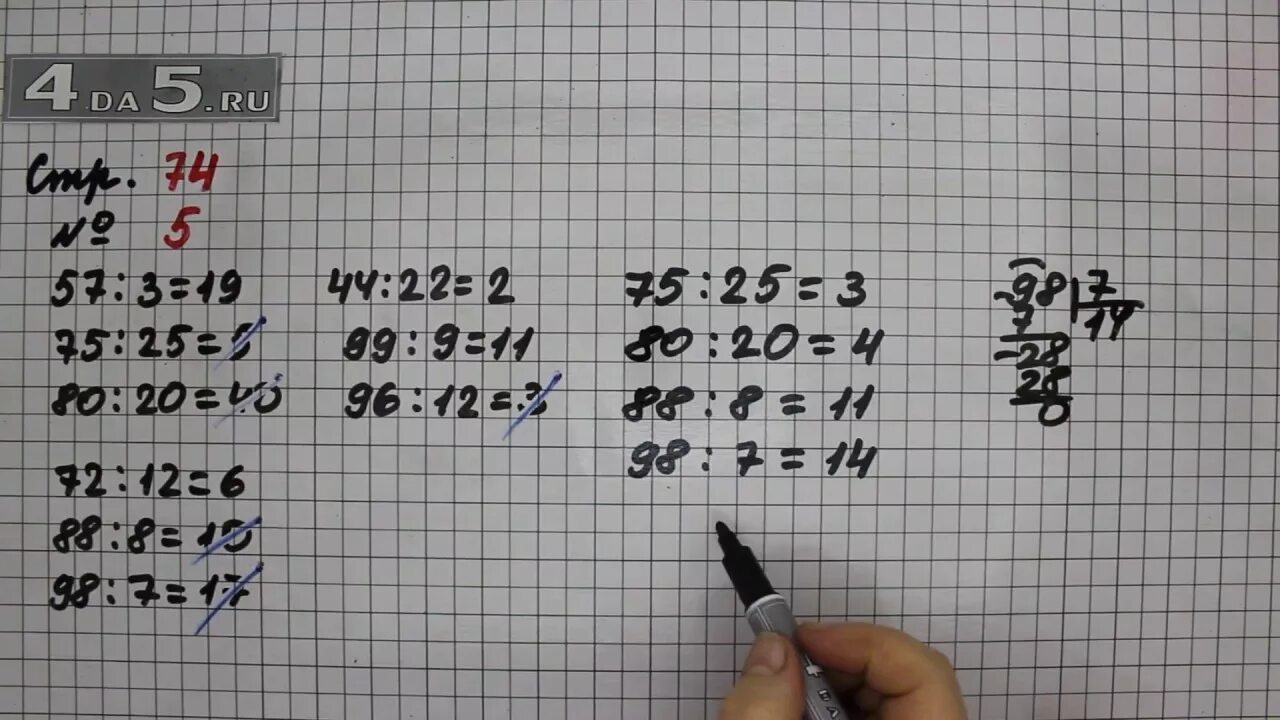 4.DA5.RU
Стр. 74
№ 5
57:3=19
75:25=5
80:20=40
72:12=6
88:8=10
98:7=17
44:22=2
99:9=11
96:12=3
75:25=3
80:20=4
88:8=11
98:7=14
-98 7
7 14
-28
28
0